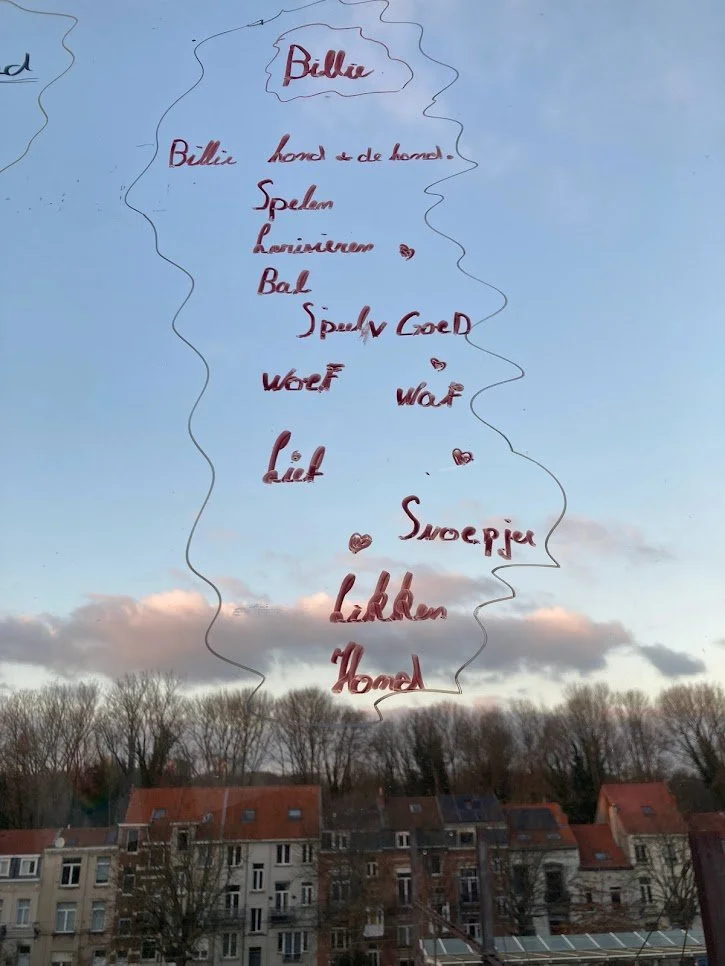 Billie
Billie hond & de hond.
Spelen
Bal
Speelv GoeD
woeF waF
Lief
Snoepje
Likken
Hond